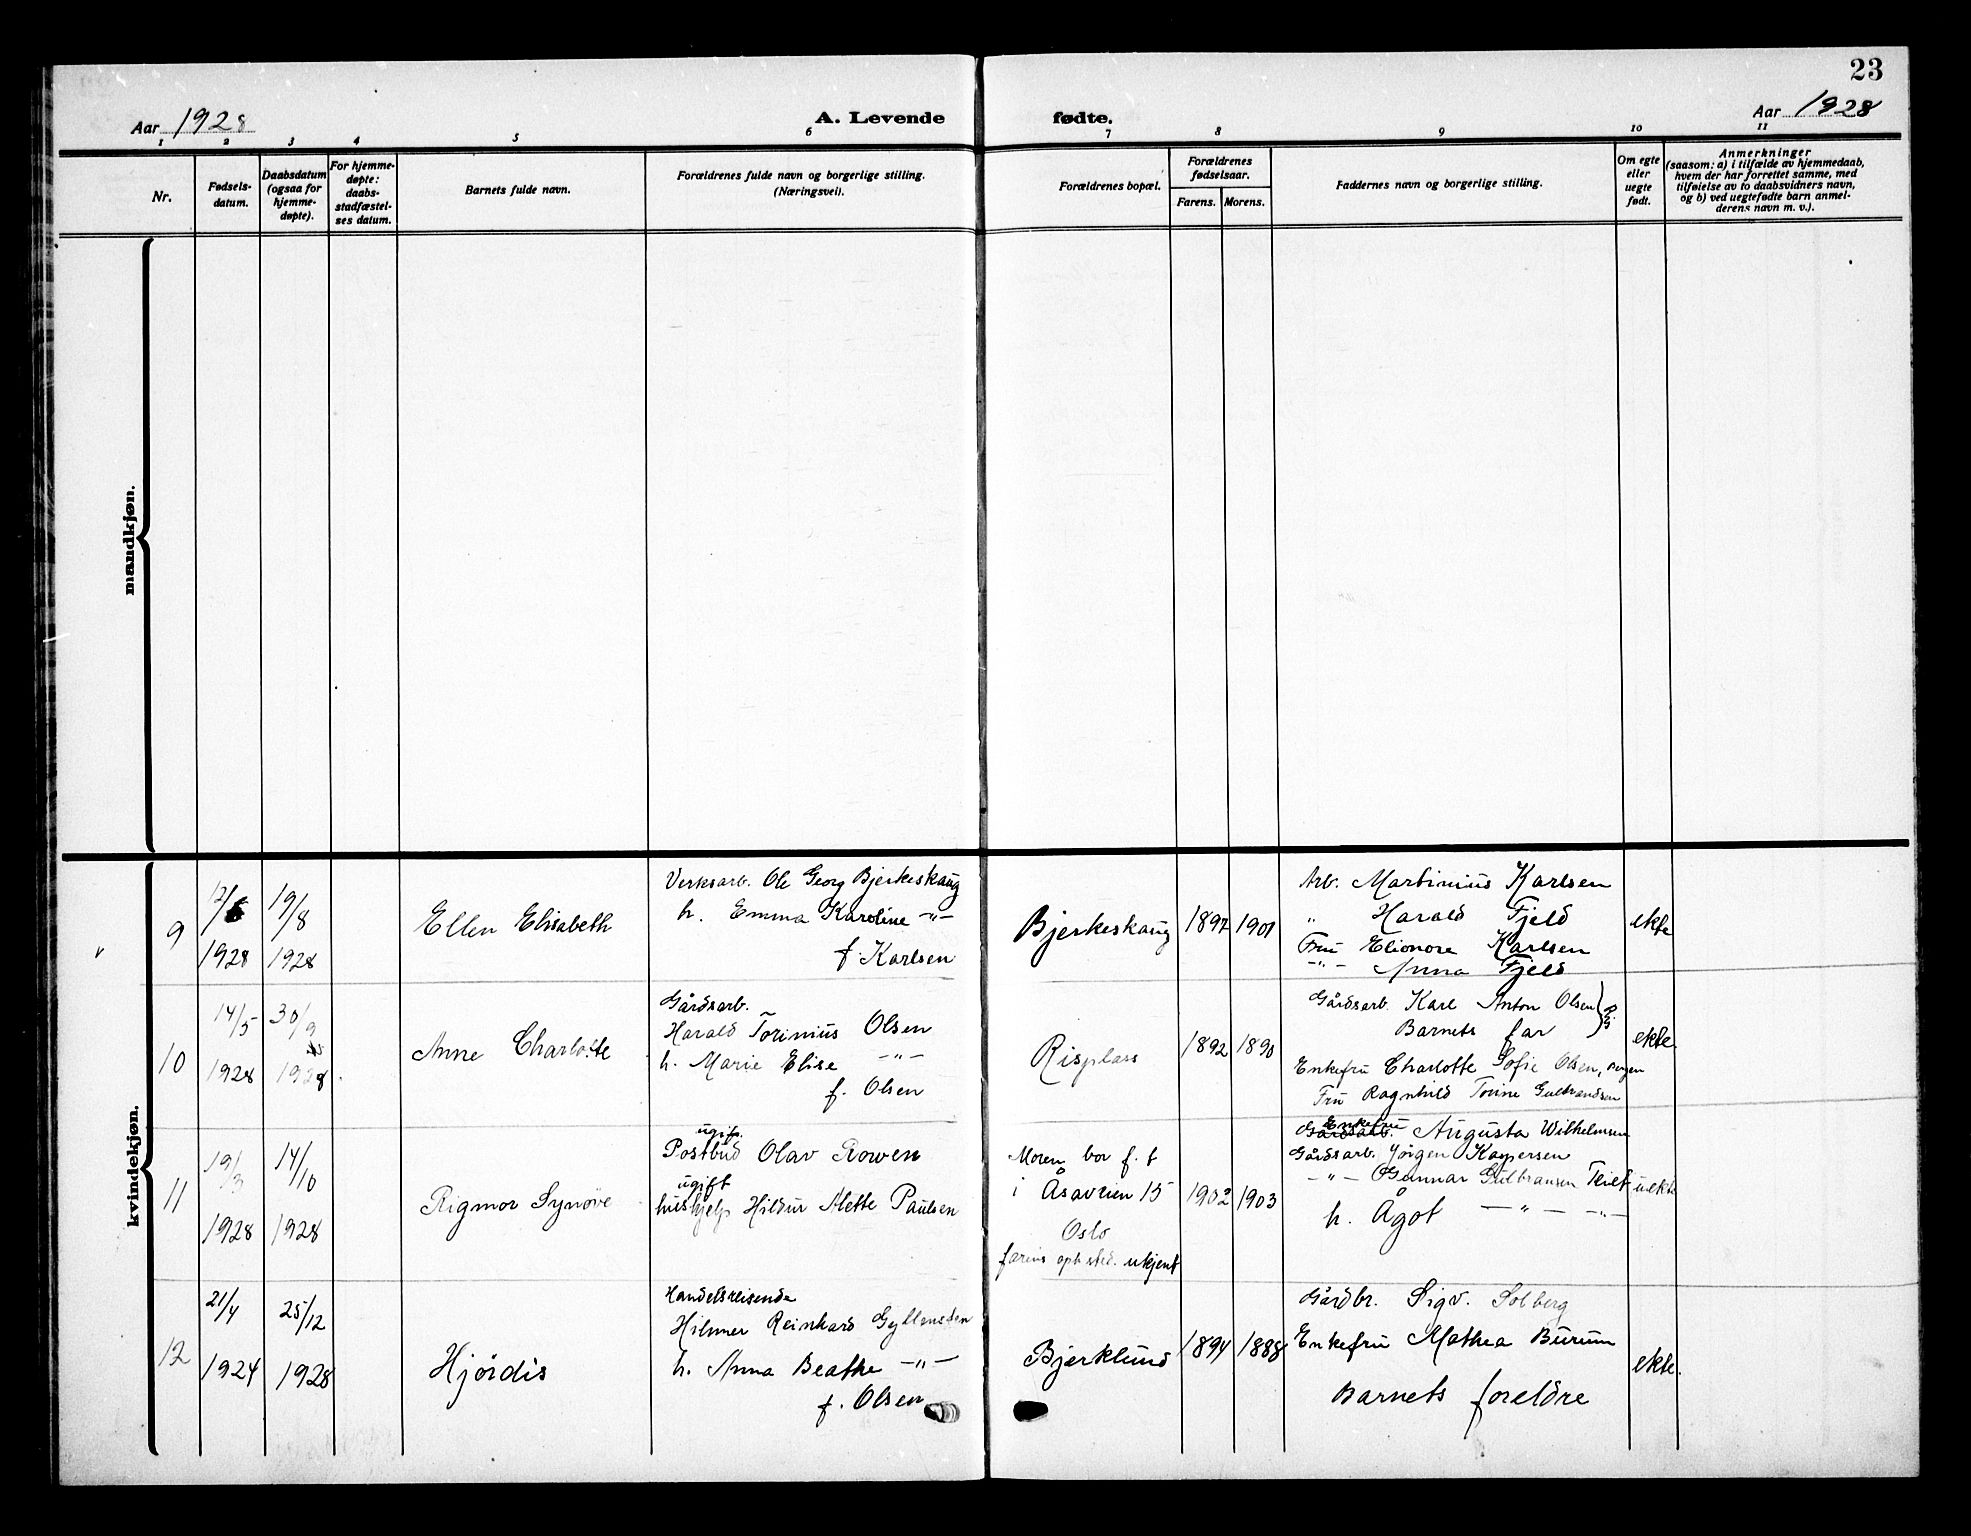 23
Aar 1928
A. Levende fødte.
Aar 1928
1 2 3 4 5 6 7 8 9 10 11
Nr.
Fødsels-
datum.
Daabsdatum
(ogsaa for
hjemme-
døpte).
For hjemme-
døpte:
daabs-
stadfæstel-
ses datum.
Barnets fulde navn.
Forældrenes fulde navn og borgerlige stilling.
(Næringsvei).
Forældrenes bopæl.
Forældrenes
fødselsaar.
Farens. Morens.
Faddernes navn og borgerlige stilling.
Om egte
eller
uegte
født.
Anmerkninger
(saasom: a) i tilfælde av hjemmedaab,
hvem der har forrettet samme, med
tilføielse av to daabsvidners navn,
og b) ved uegtefødte barn anmel-
derens navn m. v.).
mandkjøn.
kvindekjøn.
9
12/6
1928
19/8
1928
Ellen Elisabeth
Verksarb. Ole Georg Bjerkeskaug
h. Emma Karoline -"-
f. Karlsen
Bjerkeskaug
1897
1901
Arb. Martinius Karlsen
" Harald Fjeld
Fru Elionora Karlsen
-"- Anna Fjeld
ekte
10
14/5
1928
30/9
1928
Anne Charlotte
Gårdsarb.
Harald Torinius Olsen
h. Marie Elise -"-
f. Olsen
Risplass
1892
1890
Gårdsarb. Karl Anton Olsen
Barnets far
Enkefru Charlotte Sofie Olsen,
Fru Ragnhild Torine Gulbrandsen
ekte.
11
19/3
1928
14/10
1928
Rigmor Synøve
ugift.
Postbud Olav Rowen
ugift
hushjelp Hildur Alette Paulsen
Moren bor f. t
i Åsaveien 15
Oslo
farens oph. sted. ukjent
1902
1903
Enkefru
Gårdsarb. Augusta Wilhelmsen
Gårdsarb. Jørgen Kaspersen
-"- Gunnar Gulbransen Teilt
h. Ågot -"- -"-
uekte
12
21/4
1924
25/12
1928
Hjørdis
Handelsreisende
Hilmer Reinhard Gyllensten
h. Anna Beathe -"-
f. Olsen
Bjerklund
1894
1888
Gårdbr. Sigv. Solberg
Enkefru Mathea Burum
Barnets foreldre
ekte.